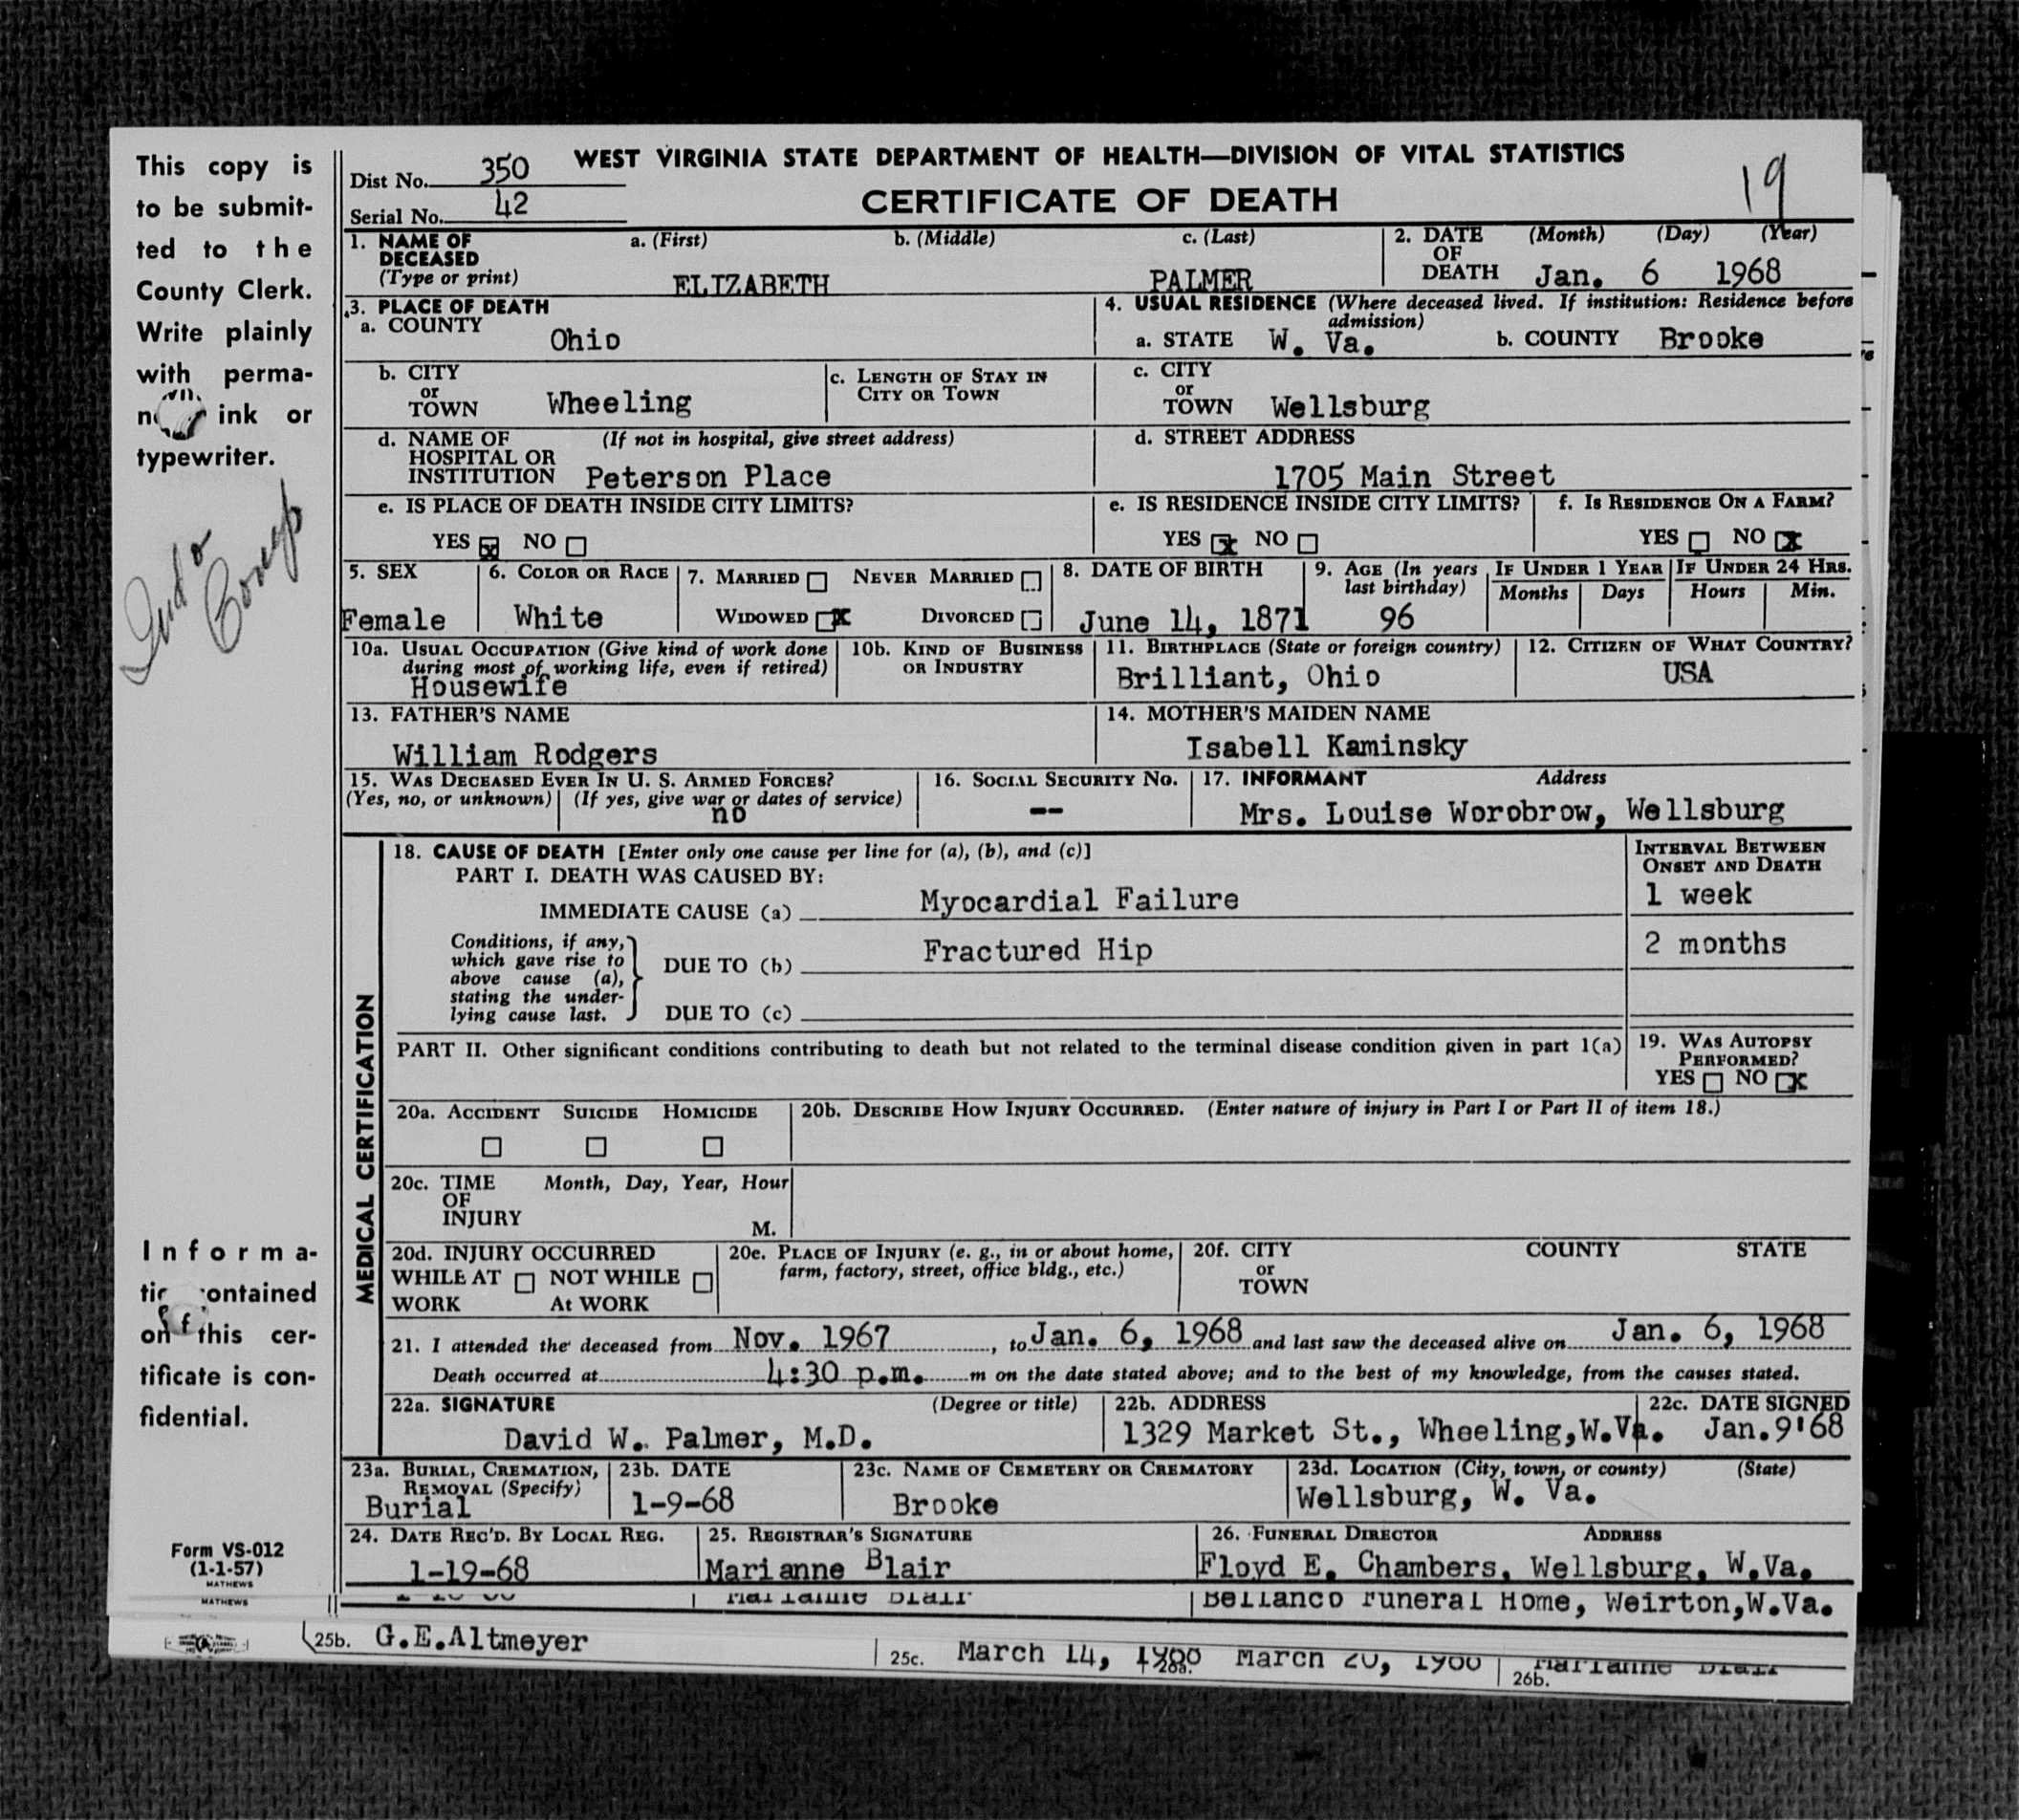 This copy is
to be submit-
ted to the
County Clerk.
Write plainly
with perma-
ink or
typewriter.
Indo
Comp
Informa-
ontained
on this cer-
tificate is con-
fidential.
Form VS-012
(1-1-57)
MATHEWS
MATHEWS
Dist No. 350
Serial No. 42
WEST VIRGINIA STATE DEPARTMENT OF HEALTH—DIVISION OF VITAL STATISTICS
CERTIFICATE OF DEATH
19
1. NAME OF DECEASED (Type or print) a. (First) b. (Middle) c. (Last)
ELIZABETH PALMER
2. DATE OF DEATH (Month) (Day) (Year)
Jan. 6 1968
3. PLACE OF DEATH
a. COUNTY Ohio
4. USUAL RESIDENCE (Where deceased lived. If institution: Residence before admission)
a. STATE W. Va. b. COUNTY Brooke
b. CITY or TOWN Wheeling
c. LENGTH OF STAY IN CITY OR TOWN
c. CITY or TOWN Wellsburg
d. NAME OF HOSPITAL OR INSTITUTION (If not in hospital, give street address)
Peterson Place
d. STREET ADDRESS
1705 Main Street
e. IS PLACE OF DEATH INSIDE CITY LIMITS?
YES x NO
e. IS RESIDENCE INSIDE CITY LIMITS?
YES x NO
f. IS RESIDENCE ON A FARM?
YES NO x
5. SEX
Female
6. COLOR OR RACE
White
7. MARRIED NEVER MARRIED
WIDOWED x DIVORCED
8. DATE OF BIRTH
June 14, 1871
9. AGE (In years last birthday)
96
IF UNDER 1 YEAR
Months Days
IF UNDER 24 HRS.
Hours Min.
10a. USUAL OCCUPATION (Give kind of work done during most of working life, even if retired)
Housewife
10b. KIND OF BUSINESS OR INDUSTRY
11. BIRTHPLACE (State or foreign country)
Brilliant, Ohio
12. CITIZEN OF WHAT COUNTRY?
USA
13. FATHER'S NAME
William Rodgers
14. MOTHER'S MAIDEN NAME
Isabell Kaminsky
15. WAS DECEASED EVER IN U. S. ARMED FORCES?
(Yes, no, or unknown) (If yes, give war or dates of service)
no
16. SOCIAL SECURITY NO.
--
17. INFORMANT Address
Mrs. Louise Worobrow, Wellsburg
MEDICAL CERTIFICATION
18. CAUSE OF DEATH [Enter only one cause per line for (a), (b), and (c)]
INTERVAL BETWEEN ONSET AND DEATH
PART I. DEATH WAS CAUSED BY:
IMMEDIATE CAUSE (a) Myocardial Failure 1 week
Conditions, if any, which gave rise to above cause (a), stating the under-lying cause last.
DUE TO (b) Fractured Hip 2 months
DUE TO (c)
PART II. Other significant conditions contributing to death but not related to the terminal disease condition given in part 1(a)
19. WAS AUTOPSY PERFORMED?
YES NO x
20a. ACCIDENT SUICIDE HOMICIDE
20b. DESCRIBE HOW INJURY OCCURRED. (Enter nature of injury in Part I or Part II of item 18.)
20c. TIME OF INJURY Month, Day, Year, Hour
M.
20d. INJURY OCCURRED
WHILE AT WORK NOT WHILE At WORK
20e. PLACE OF INJURY (e. g., in or about home, farm, factory, street, office bldg., etc.)
20f. CITY or TOWN COUNTY STATE
21. I attended the deceased from Nov. 1967, to Jan. 6, 1968 and last saw the deceased alive on Jan. 6, 1968
Death occurred at 4:30 p.m. m on the date stated above; and to the best of my knowledge, from the causes stated.
22a. SIGNATURE (Degree or title)
David W. Palmer, M.D.
22b. ADDRESS
1329 Market St., Wheeling,W.Va.
22c. DATE SIGNED
Jan.9'68
23a. BURIAL, CREMATION, REMOVAL (Specify)
Burial
23b. DATE
1-9-68
23c. NAME OF CEMETERY OR CREMATORY
Brooke
23d. LOCATION (City, town, or county) (State)
Wellsburg, W. Va.
24. DATE REC'D. BY LOCAL REG.
1-19-68
25. REGISTRAR'S SIGNATURE
Marianne Blair
26. FUNERAL DIRECTOR ADDRESS
Floyd E. Chambers, Wellsburg, W.Va.
Marianne Blair Bellanco Funeral Home, Weirton,W.Va.
25b. G.E.Altmeyer
25c. March 14, March 20, Marianne Blair
26b.